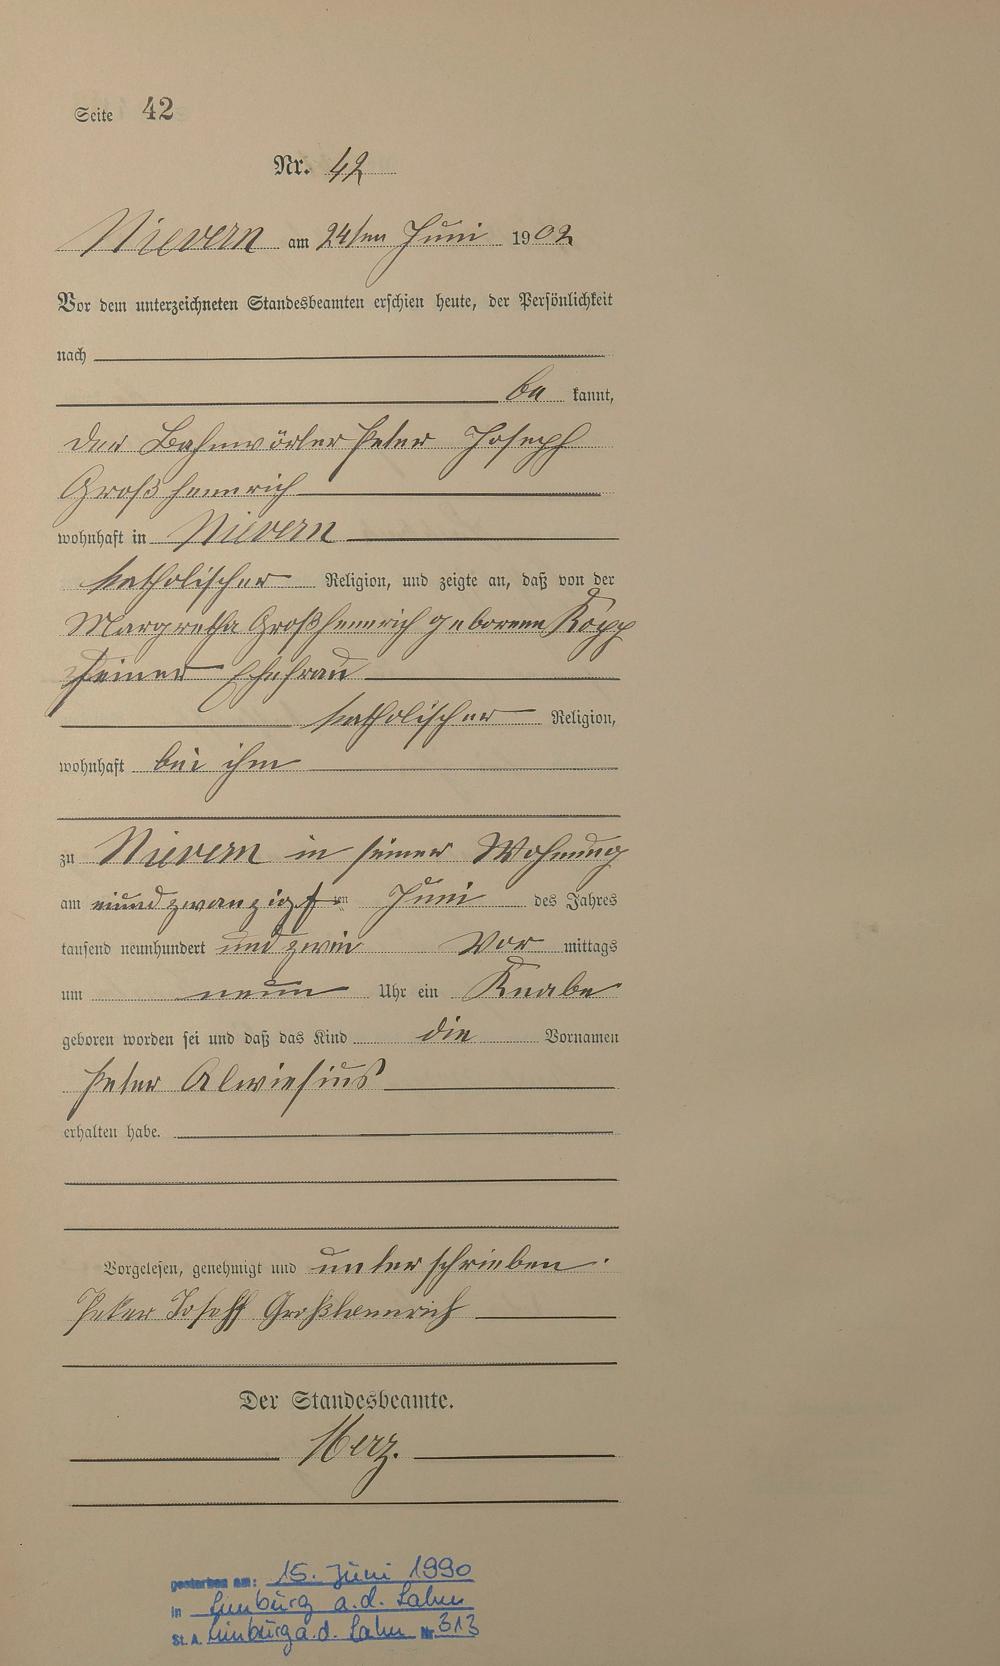 Seite 42
Nr. 42
Nievern am 24ten Juni 1902
Vor dem unterzeichneten Standesbeamten erschien heute, der Persönlichkeit
nach
be kannt,
der Bahnwärter Peter Joseph
Großhennrich
wohnhaft in Nievern
katholischer Religion, und zeigte an, daß von der
Margretha Großhennrich geborene Kopp
seiner Ehefrau
katholischer Religion,
wohnhaft bei ihm
zu Nievern in seiner Wohnung
am einundzwanzigsten Juni des Jahres
tausend neunhundert und zwei Vor mittags
um neun Uhr ein Knabe
geboren worden sei und daß das Kind die Vornamen
Peter Alwiesius
erhalten habe.
Vorgelesen, genehmigt und unterschrieben.
Peter Joseff Großhennrich
Der Standesbeamte.
Merz.
gestorben am: 15. Juni 1990
in Limburg a.d. Lahn
St. A. Limburg a.d. Lahn Nr. 313